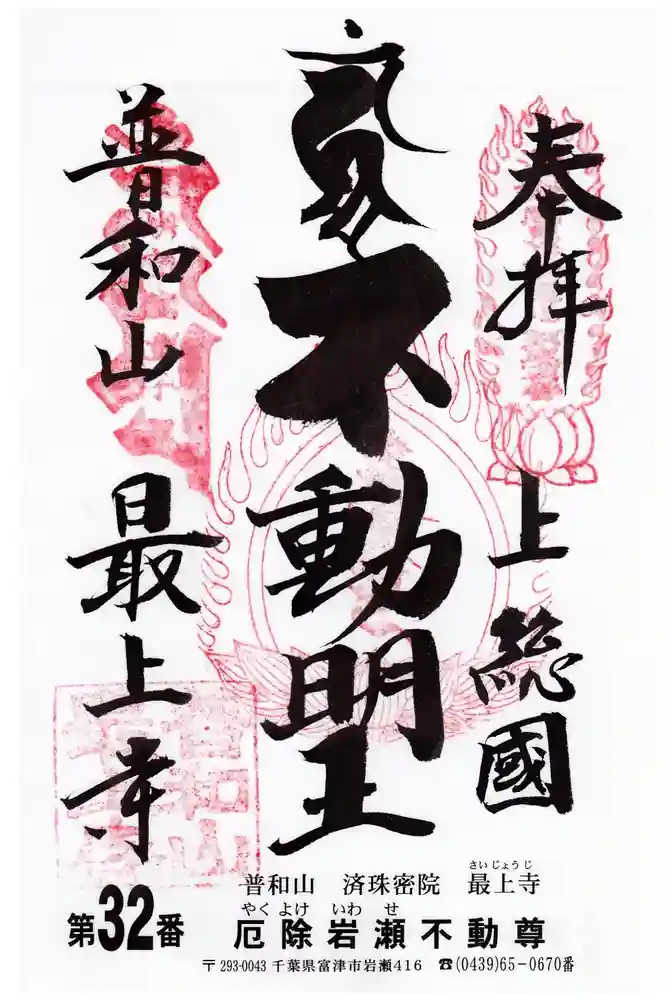 奉拝
上総國
不動明王
普和山
最上寺
普和山　済珠密院　最上寺
さいじょうじ
第32番
やくよけ　いわせ
厄除岩瀬不動尊
〒293-0043 千葉県富津市岩瀬416　☎(0439)65-0670番